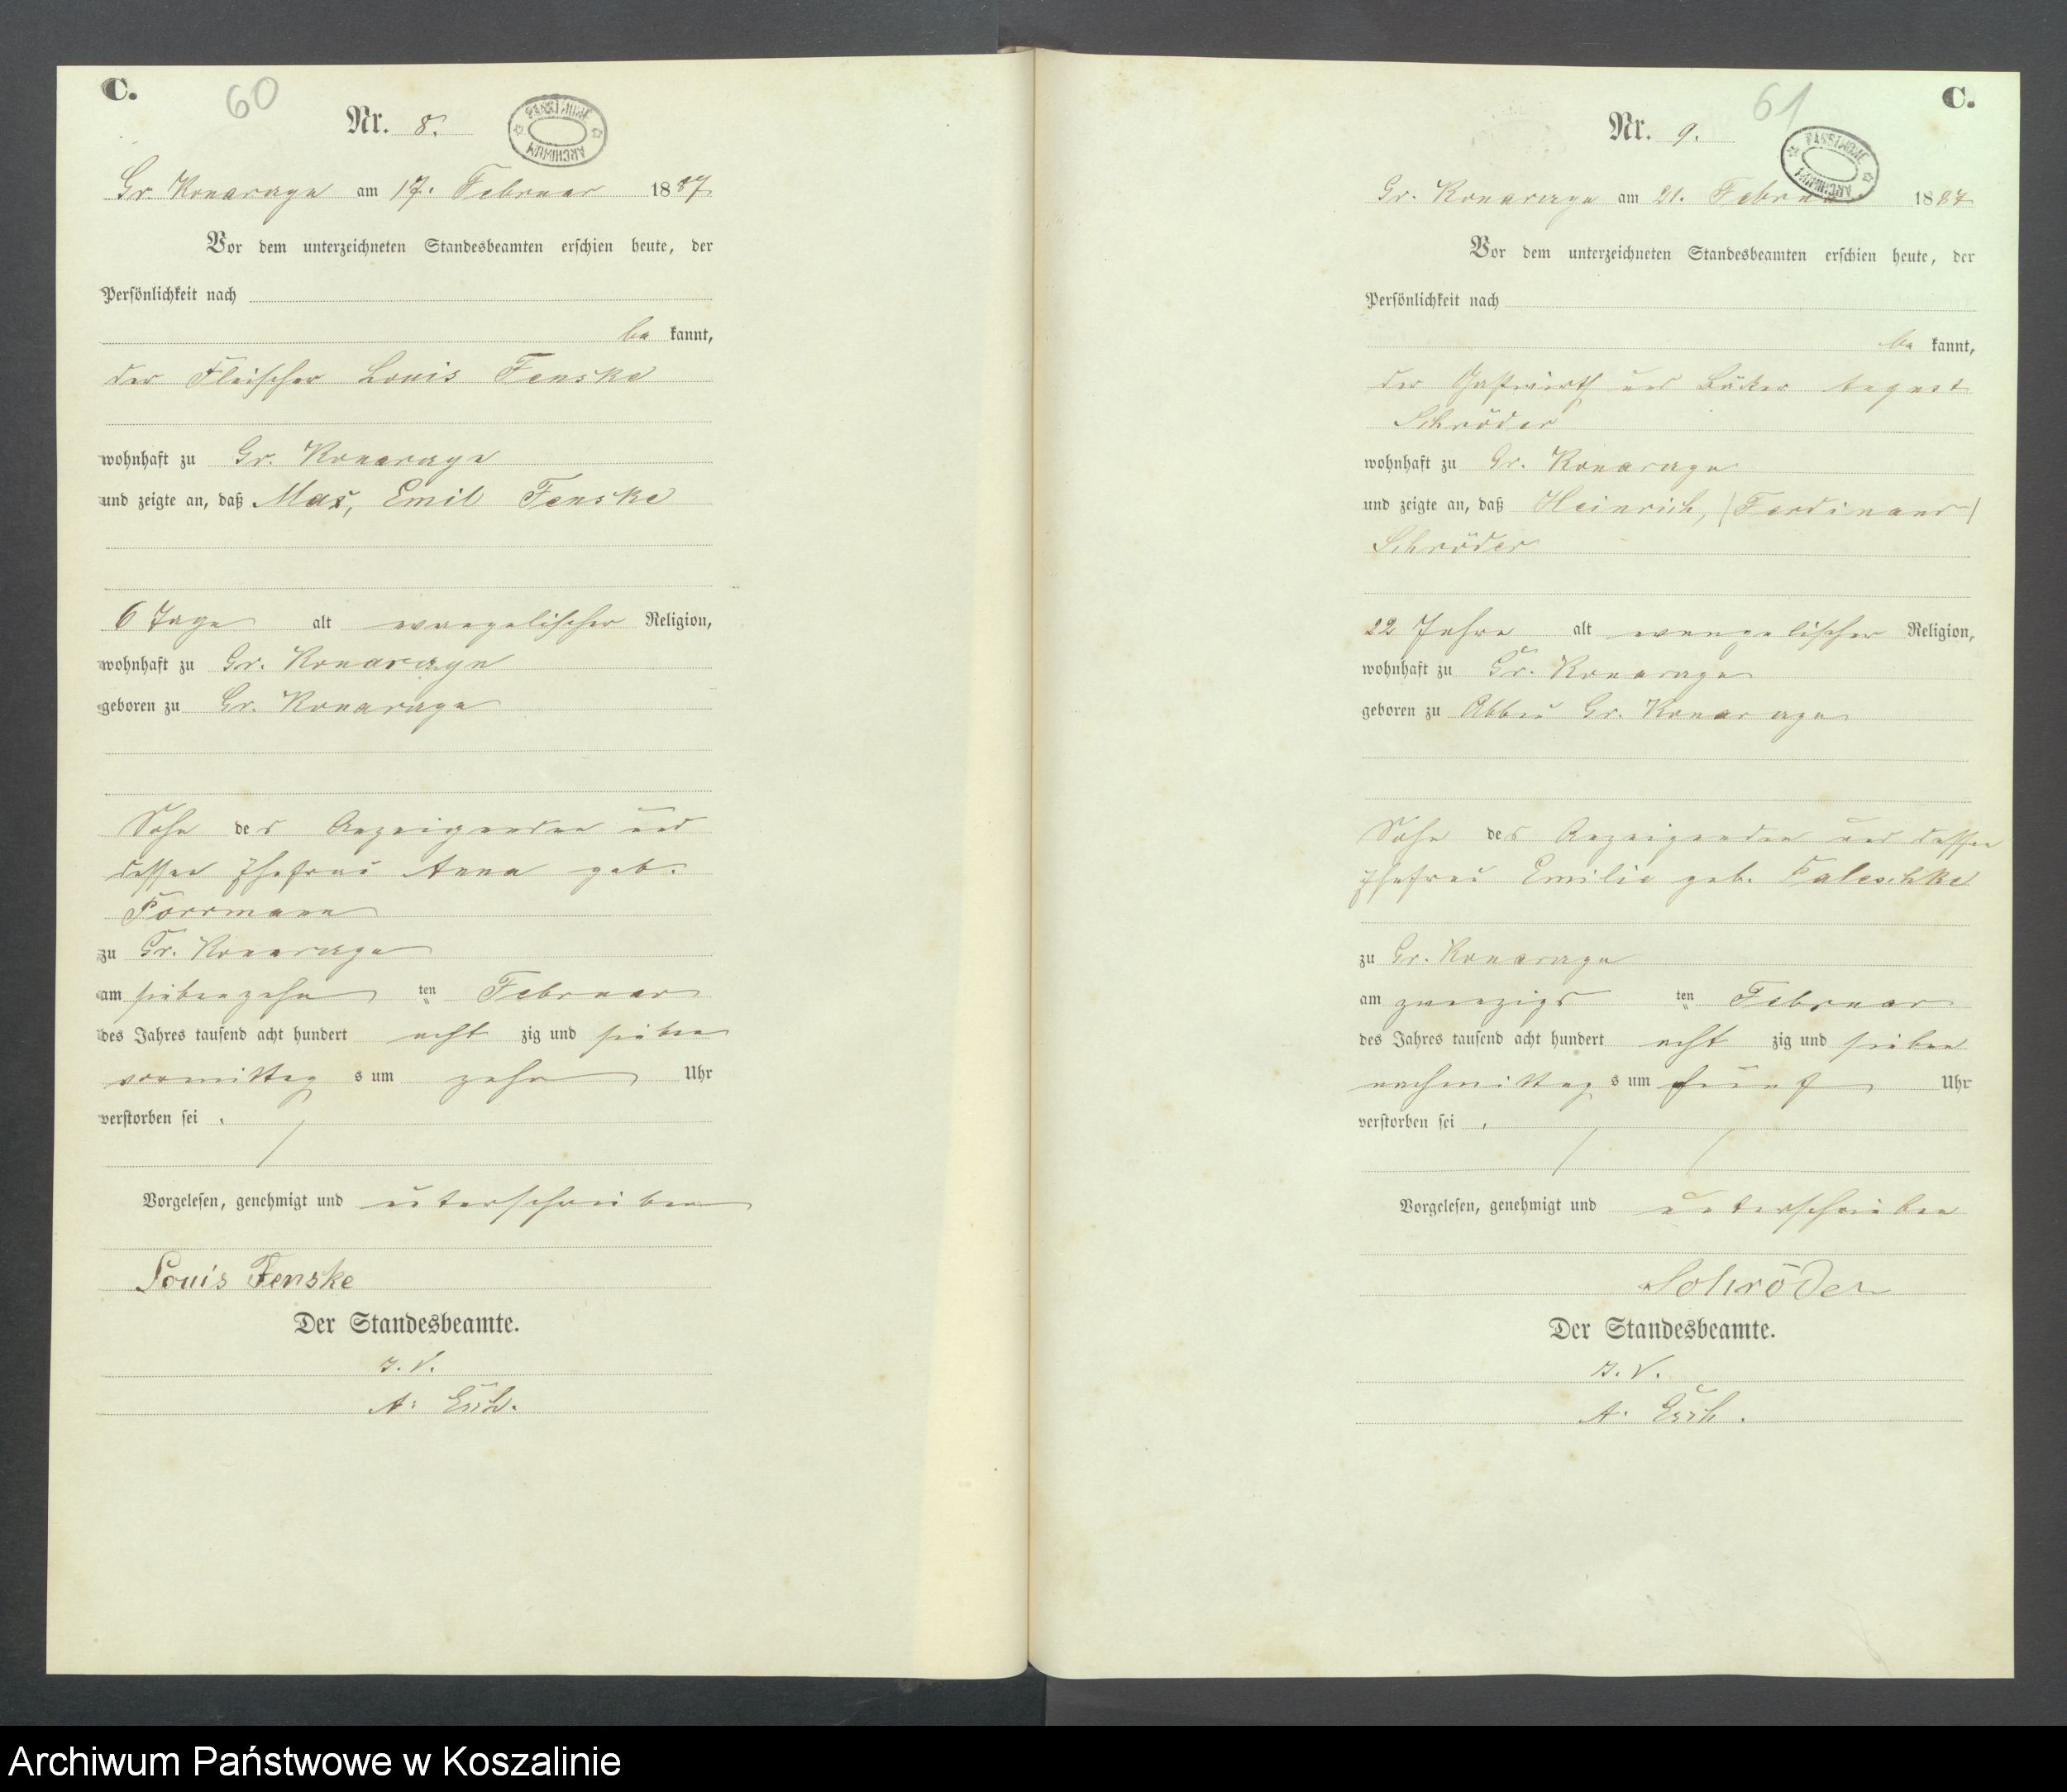 C.
60
Nr. 8.
ARCHIWUM PAŃSTWOWE
Gr. Konarzyn am 17. Februar 1887
Vor dem unterzeichneten Standesbeamten erschien heute, der
Persönlichkeit nach
be kannt,
der Fleischer Louis Fenske
wohnhaft zu Gr. Konarzyn
und zeigte an, daß Max, Emil Fenske
6 Tage alt evangelischer Religion,
wohnhaft zu Gr. Konarzyn
geboren zu Gr. Konarzyn
Sohn des Anzeigenden und
dessen Ehefrau Anna geb.
zu Gr. Konarzyn
am siebenzehn ten Februar
des Jahres tausend acht hundert acht zig und sieben
vormittag s um zehn Uhr
verstorben sei.
Vorgelesen, genehmigt und unterschrieben
Louis Fenske
Der Standesbeamte.
I. V.
A.
61
C.
Nr. 9.
ARCHIWUM PAŃSTWOWE
Gr. Konarzyn am 21. Februar 1887
Vor dem unterzeichneten Standesbeamten erschien heute, der
Persönlichkeit nach
be kannt,
der Gastwirth und Bäcker August
Schröder
wohnhaft zu Gr. Konarzyn
und zeigte an, daß Heinrich, (Ferdinand)
Schröder
22 Jahre alt evangelischer Religion,
wohnhaft zu Gr. Konarzyn
geboren zu Abbau Gr. Konarzyn
Sohn des Anzeigenden und dessen
Ehefrau Emilie geb. Paleschke
zu Gr. Konarzyn
am zwanzigs ten Februar
des Jahres tausend acht hundert acht zig und sieben
nachmittag s um fünf Uhr
verstorben sei.
Vorgelesen, genehmigt und unterschrieben
Schröder
Der Standesbeamte.
I. V.
A.
Archiwum Państwowe w Koszalinie